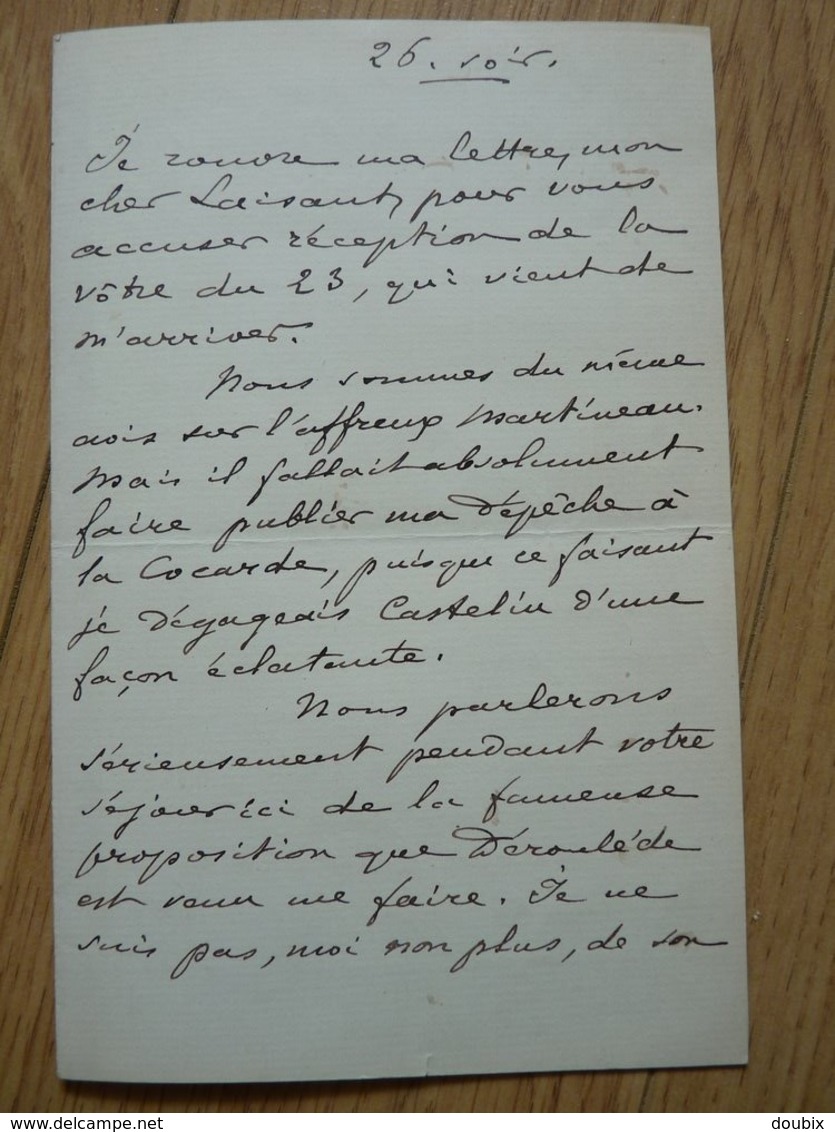 26. soir.
Je rouvre ma lettre, mon
cher Laisant, pour vous
accuser réception de la
vôtre du 23, qui vient de
m'arriver.
Nous sommes du même
avis sur l'affreux Martineau.
Mais il fallait absolument
faire publier ma dépêche à
la Cocarde, puisque ce faisant
je dégageais Castelin d'une
façon éclatante.
Nous parlerons
sérieusement pendant votre
séjour ici de la fameuse
proposition que Déroulède
est venu me faire. Je ne
suis pas, moi non plus, de son
www.delcampe.net
doubix